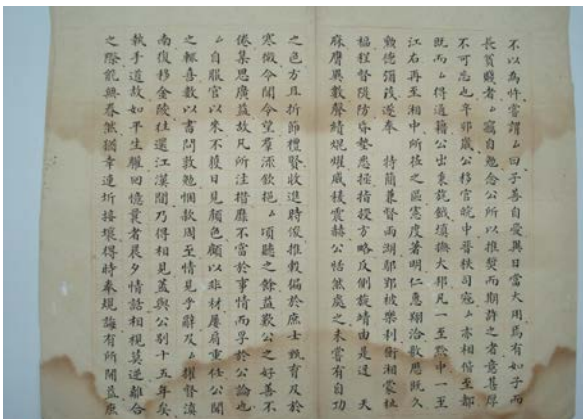 不以為忤嘗謂ム曰子善自愛異日當大用焉有如子而
長貧賤者ム竊自勉念公所以推奬而期許之者意甚厚
不可忘也辛卯歲公移官皖中晉秩司寇ム亦相偕至都
既而ム得通籍公出秉旄鉞填撫大邦凡一至黔中一至
江右再至湘中所在之區憲度著明仁惠翔洽敭歷既久
勲德彌茂遂奉 特簡兼督兩湖鄖鄂被樂利衡湘蒙社
福程督隄防脅墊悉拯指授方略反側旋靖由是迓 天
庥膺異數聲績焜燿威稜震赫公恬然處之未嘗有自功
之色方且折節禮賢收進時俊推轂偏於庶士甄育及於
寒微令聞令望羣流欽挹ム頃聽之餘益歎公之好善不
倦集思廣益故凡所注措靡不富於事情而孚於公論也
ム自服官以來不獲日見顏色顧以非材屢肩重任公聞
之輒喜數以書問敦勉悃款周至情見乎辭及ム擢督漢
南復移金陵往還江漢間乃得相見蓋與公別十五年矣
執手道故如平生驩回憶曩者晨夕情話相規莫逆離合
之際能無眷然猶幸連圻接壤得時奉規誨有所開益庶